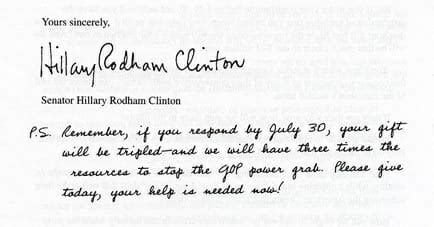 Yours sincerely,
Hillary Rodham Clinton
Senator Hillary Rodham Clinton
P.S. Remember, if you respond by July 30, your gift
will be tripled—and we will have three times the
resources to stop the GOP power grab. Please give
today, your help is needed now!